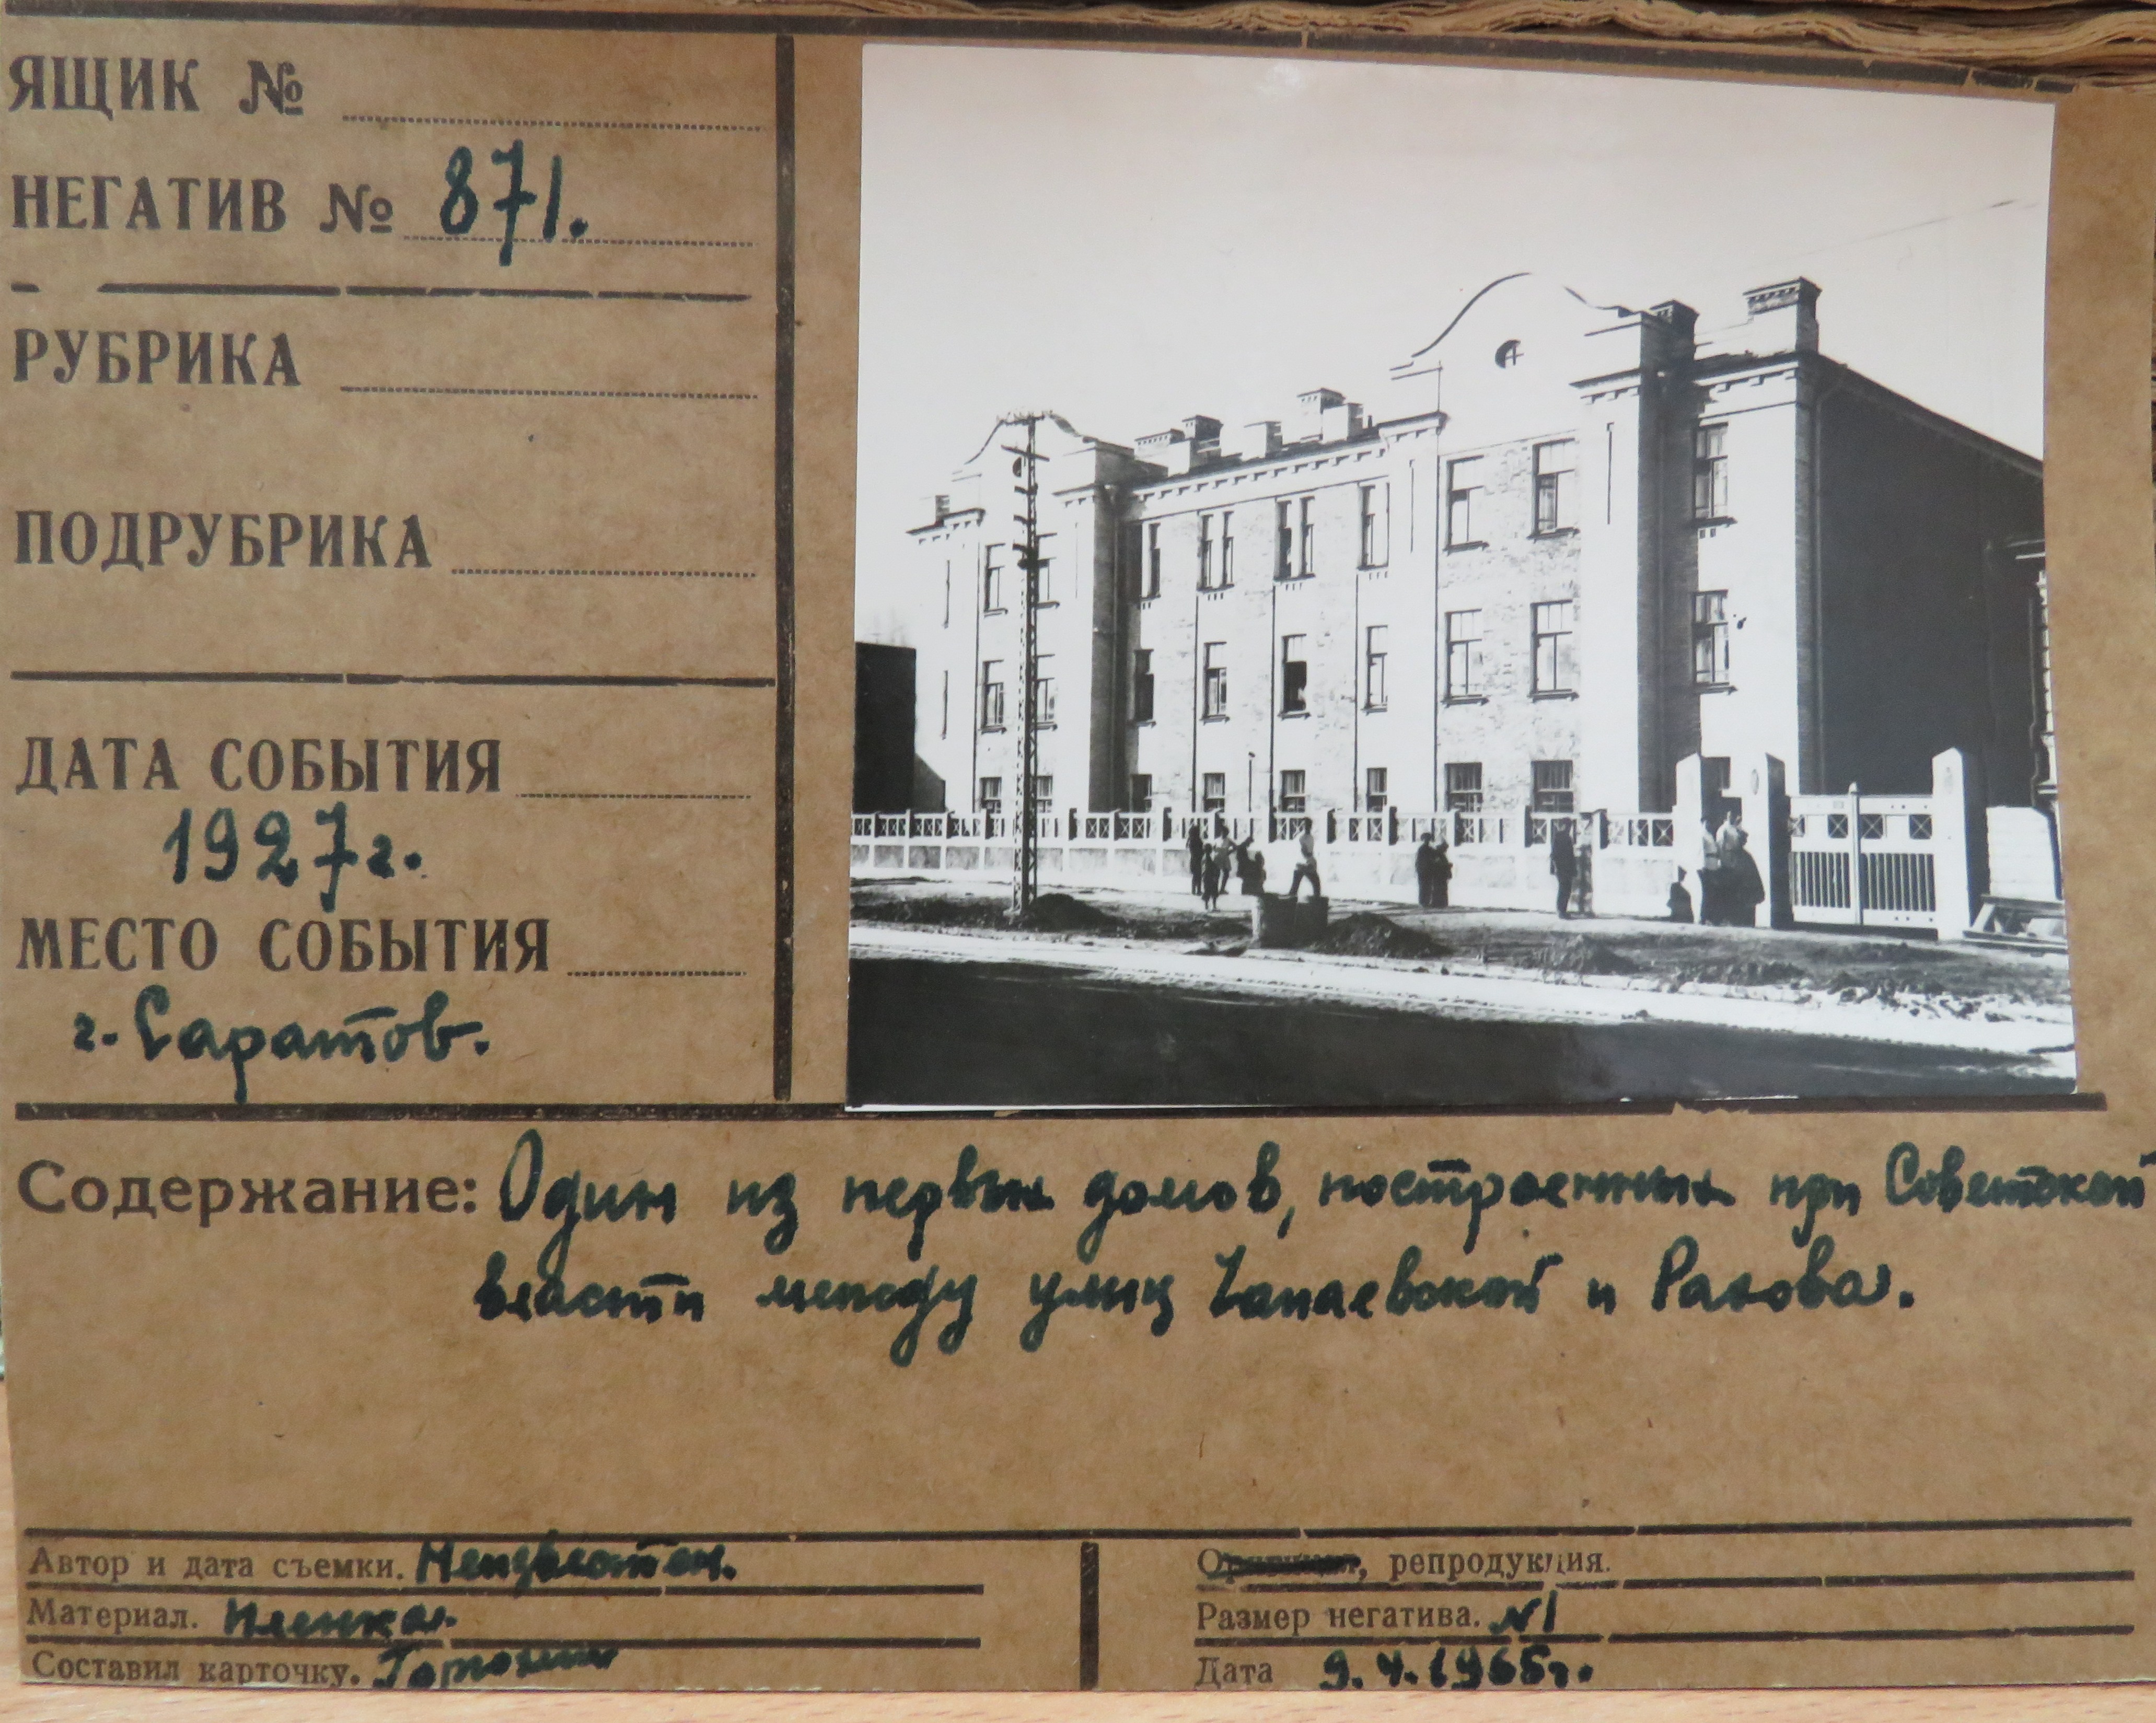 ЯЩИК №
НЕГАТИВ № 871.
РУБРИКА
ПОДРУБРИКА
ДАТА СОБЫТИЯ
1927 г.
МЕСТО СОБЫТИЯ
г. Саратов.
Содержание: Один из первых домов, построенных при Советской
власти между улиц Чапаевской и Рахова.
Автор и дата съемки. Неизвестен.
Материал. Пленка.
Составил карточку.
репродукция.
Размер негатива. №1
Дата 9.4.1965г.